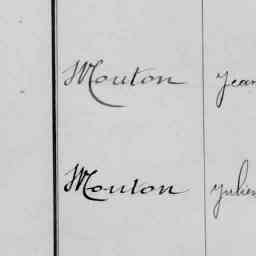 Mouton Jean
Mouton Julien